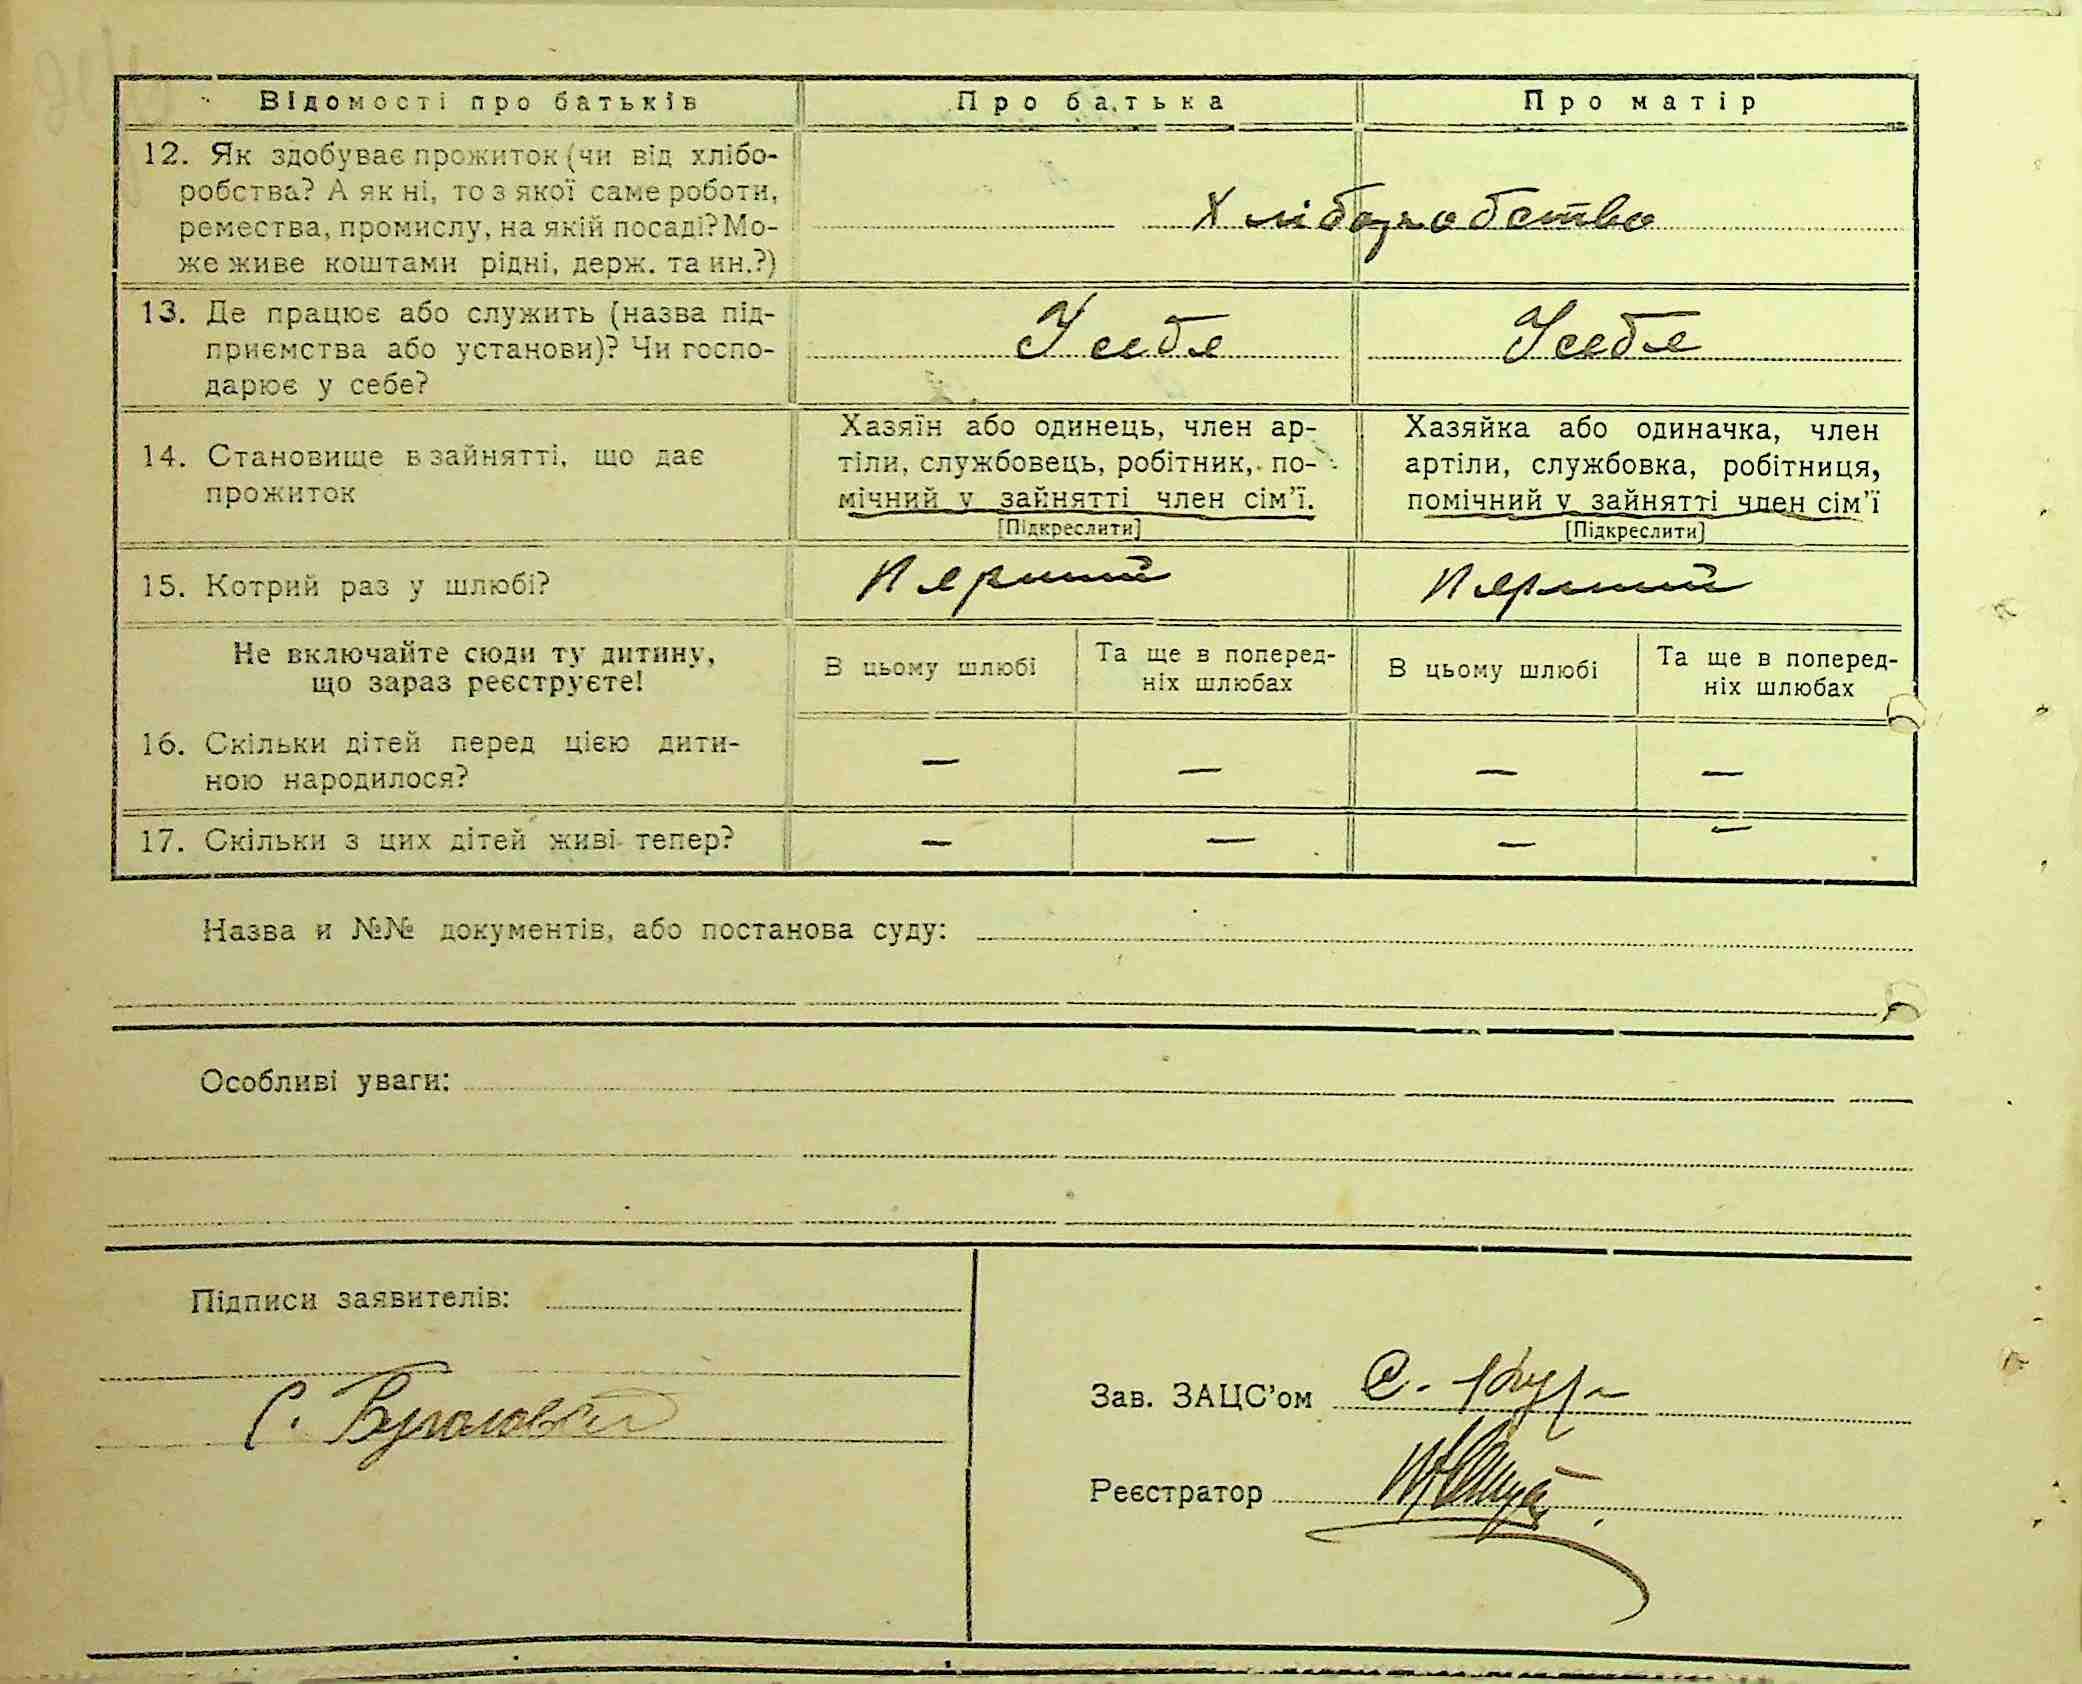 Відомості про батьків Про батька Про матір
12. Як здобуває прожиток (чи від хлібо-
робства? А як ні, то з якої саме роботи,
ремества, промислу, на якій посаді? Мо-
же живе коштами рідні, держ. та ин.?)
Хліборобство
13. Де працює або служить (назва під-
приємства або установи)? Чи госпо-
дарює у себе?
У себе У себе
14. Становище в зайнятті, що дає
прожиток
Хазяїн або одинець, член ар-
тіли, службовець, робітник, по-
мічний у зайнятті член сім'ї.
[Підкреслити]
Хазяйка або одиначка, член
артіли, службовка, робітниця,
помічний у зайнятті член сім'ї
[Підкреслити]
15. Котрий раз у шлюбі? Перший Перший
Не включайте сюди ту дитину,
що зараз реєструєте!
В цьому шлюбі
Та ще в поперед-
ніх шлюбах
В цьому шлюбі
Та ще в поперед-
ніх шлюбах
16. Скільки дітей перед цією дити-
ною народилося?
— — — —
17. Скільки з цих дітей живі тепер? — — — —
Назва и №№ документів, або постанова суду:
Особливі уваги:
Підписи заявителів:
С.
Зав. ЗАЦС'ом С.
Реєстратор